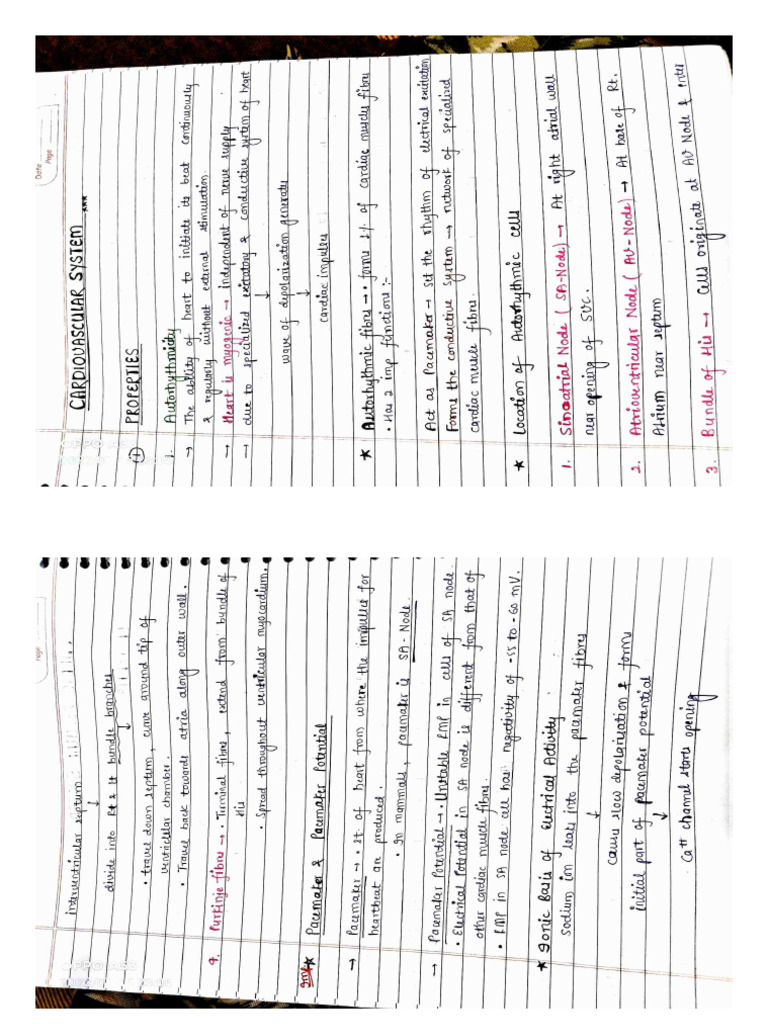 Date
Page
CARDIOVASCULAR SYSTEM ***
PROPERTIES
(i)
1. Autorhythmicity
→ The ability of heart to initiate its beat continuously
& regularly without external stimulation.
→ Heart is myogenic → independent of nerve supply
→ due to specialized excitatory & conductive system of heart
↓
wave of depolarization generate
↓
cardiac impulses
* Autorhythmic fibre → • forms 1% of cardiac muscle fibre
• Has 2 imp functions :-
Act as Pacemaker → set the rhythm of electrical excitation
Forms the conductive system → network of specialized
cardiac muscle fibre.
* Location of Autorhythmic cells
1. Sinoatrial Node (SA-Node) → At right atrial wall
near opening of SVC.
2. Atrioventricular Node (AV-Node) → At base of Rt.
Atrium near septum
3. Bundle of His → Cells originate at AV Node & enter
OPPO
Page
interventricular septum
↓
divide into Rt & Lt bundle branches
↓
• travel down septum, curve around tip of
ventricular chamber.
• Travel back towards atria along outer wall.
4. Purkinje fibre → • Terminal fibre, extend from bundle of
His
• Spread throughout ventricular myocardium.
Imp * Pacemaker & Pacemaker Potential
→ Pacemaker → • It of heart from where the impulses for
heartbeat are produced.
• In mammals, pacemaker is SA-Node.
→ Pacemaker Potential → • Unstable RMP in cells of SA node.
• Electrical Potential in SA node is different from that of
other cardiac muscle fibre.
• RMP in SA node cell has negativity of -55 to -60 mV.
* Ionic Basis of Electrical Activity
sodium ion leaks into the pacemaker fibres
↓
cause slow depolarisation & forms
initial part of pacemaker potential
↓
Ca++ channel starts opening
OPPO